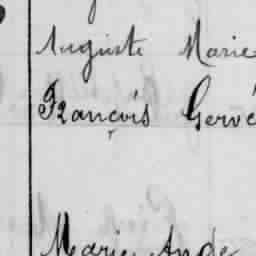 Auguste Marie
François Gervé
Marie Ande